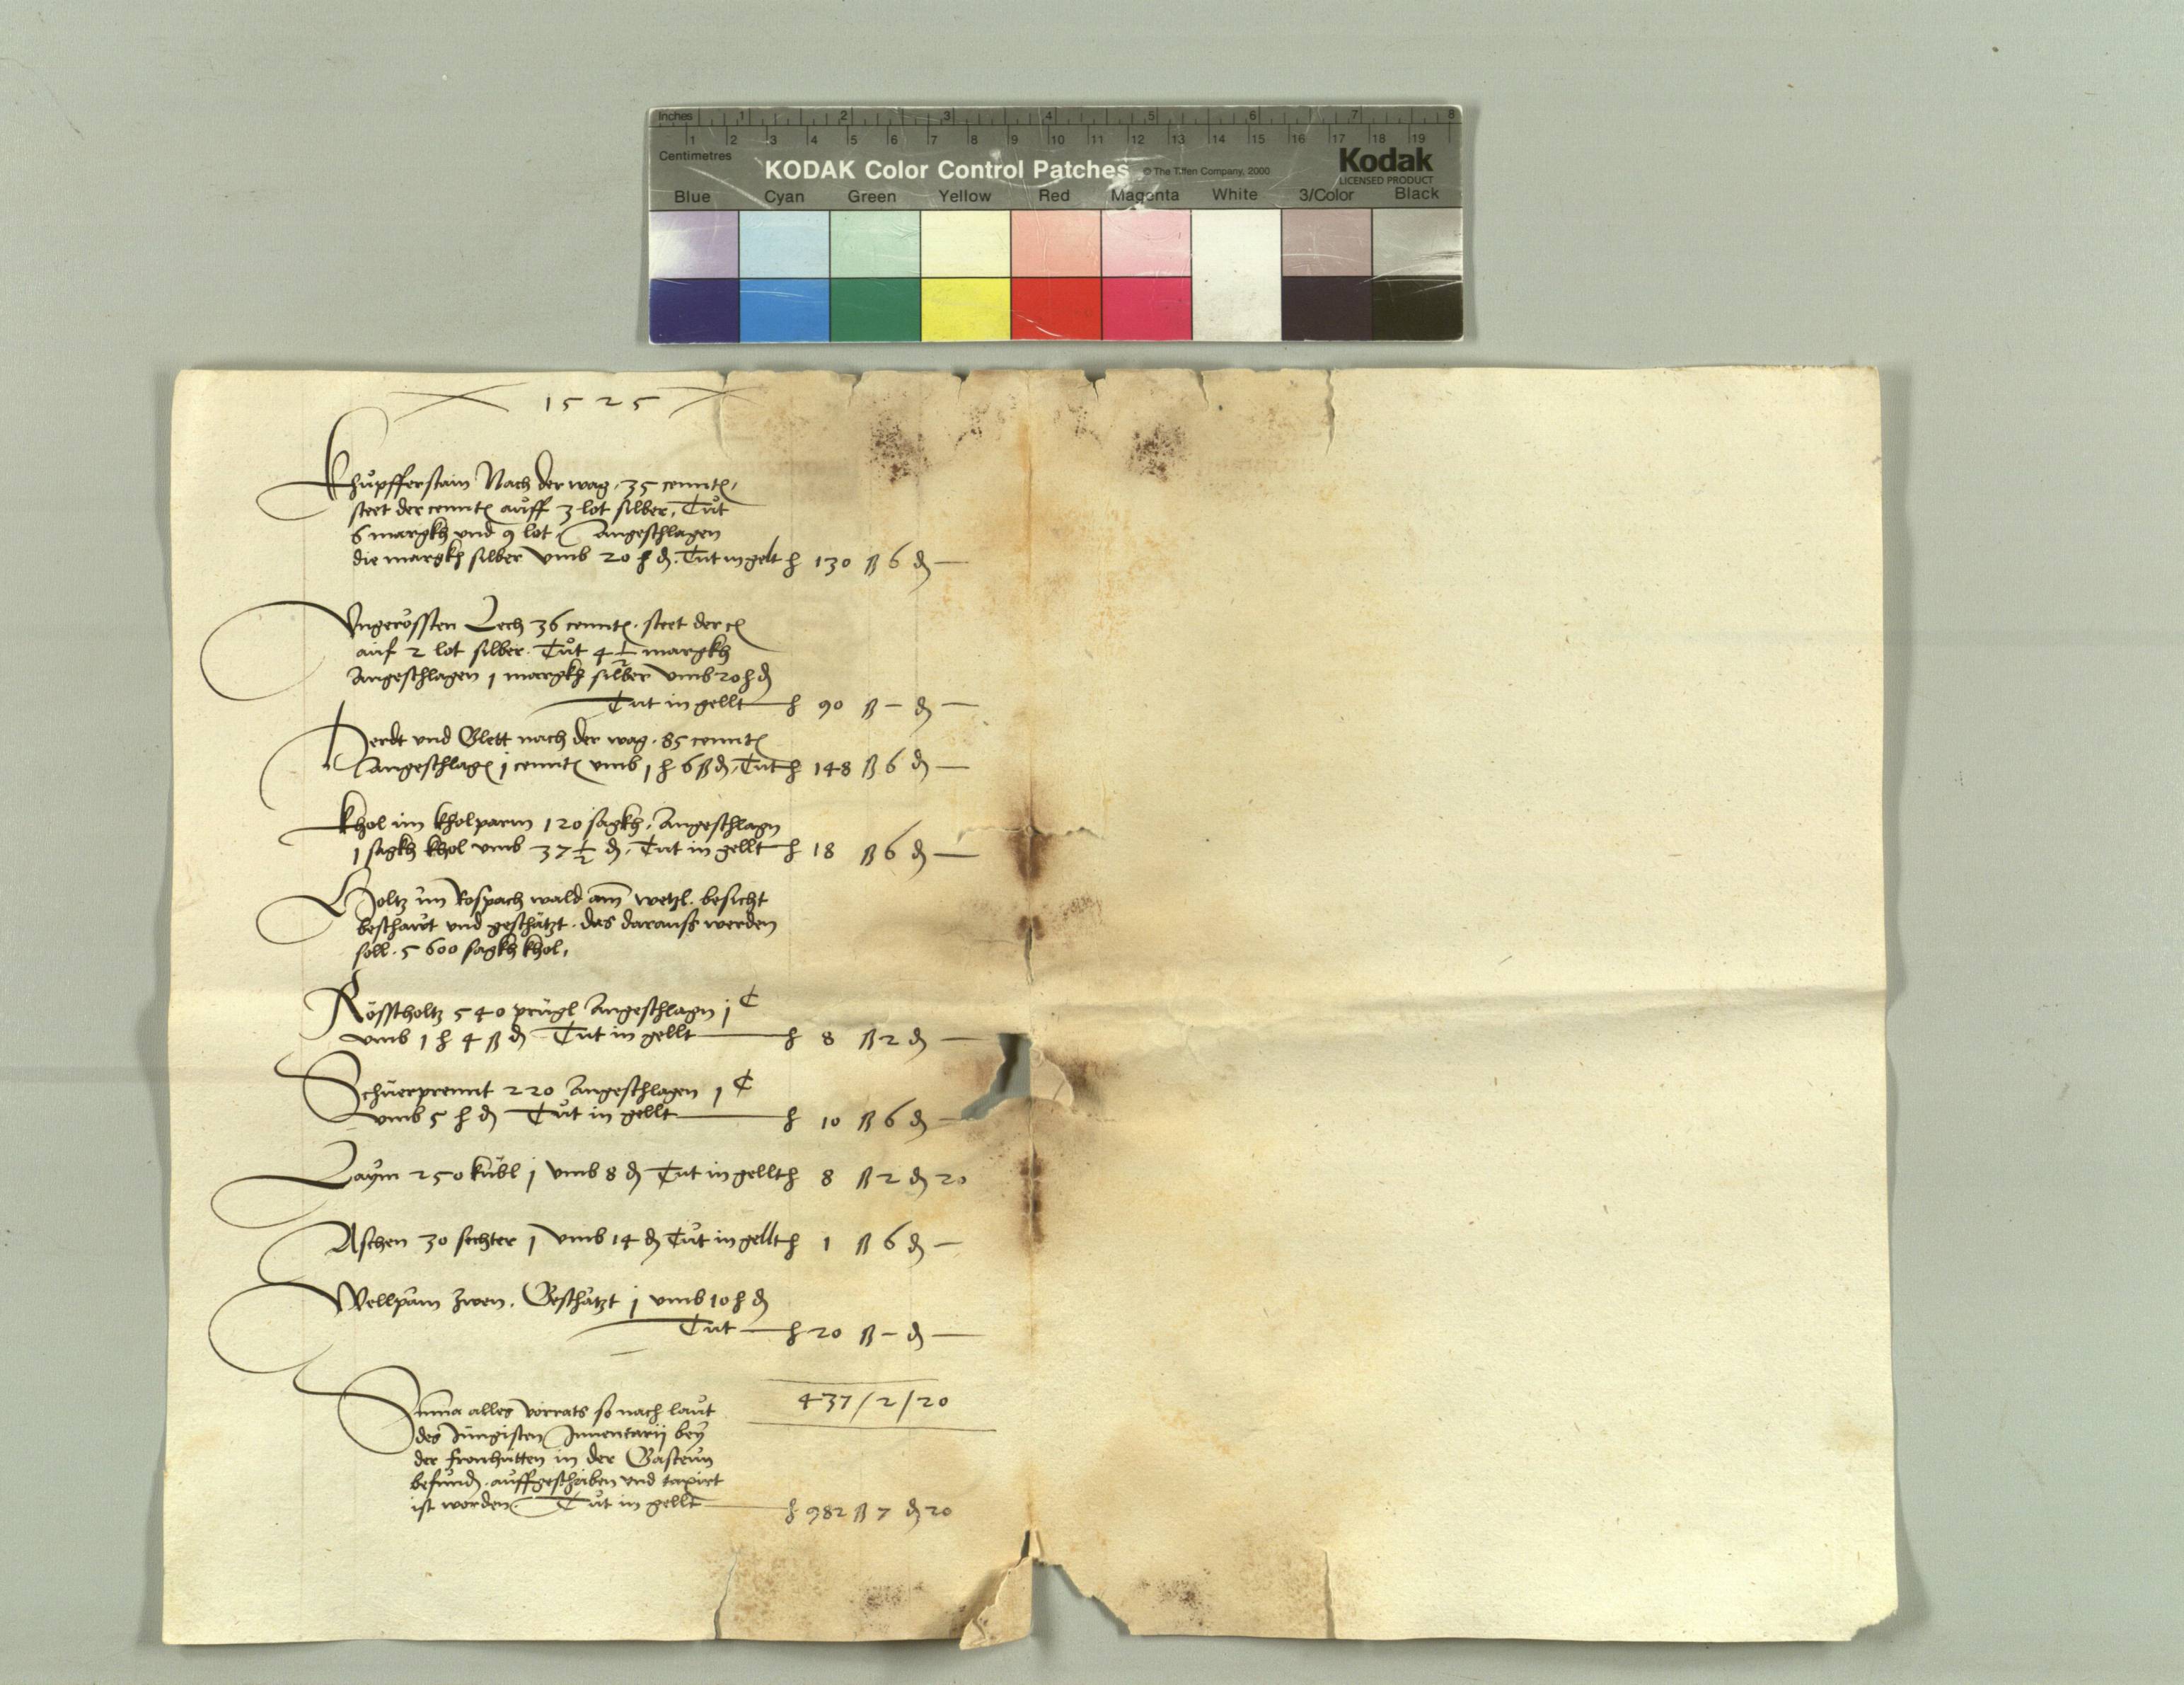 Inches 1 2 3 4 5 6 7 8
1 2 3 4 5 6 7 8 9 10 11 12 13 14 15 16 17 18 19
Centimetres
KODAK Color Control Patches © The Tiffen Company, 2000 Kodak
LICENSED PRODUCT
Blue Cyan Green Yellow Red Magenta White 3/Color Black
1525
Khupfferstain Nach der wag. 35 cennt(e)
steet der cennt(e) auff 3 lot silber, Tut
6 margkh und 9 lot Angeschlagen
die margkh silber vmb 20 ℔ ₰. Tut in gelt ℔ 130 ß 6 ₰ —
Vngerössten Lech 36 cennt(e). steet der c(e)
auf 2 lot silber. Tut 4 1/2 margkh
Angeschlagen 1 margkh silber vmb 20 ℔ ₰
Tut in gellt ℔ 90 ß — ₰ —
Herdt und Glett nach der wag. 85 cennt(e)
Angeschlag(e) 1 cennt(e) vmb 1 ℔ 6 ß ₰, Tut ℔ 148 ß 6 ₰ —
Khol im kholparm 120 sagkh, Angeschlagn
1 sagkh khol vmb 37 1/2 ₰, Tut in gellt ℔ 18 ß 6 ₰ —
Holtz im Rospach wald am besicht
beschaut und geschätzt. das darauss werden
soll. 5600 sagkh khol,
Rösstholtz 540 prügl Angeschlagn j C
vmb 1 ℔ 4 ß ₰ Tut in gellt ℔ 8 ß 2 ₰ —
Schüerprennt 220 Angeschlagen 1 C
vmb 5 ℔ ₰ Tut in gellt ℔ 10 ß 6 ₰ —
Laym 250 kübl j vmb 8 ₰ Tut in gellt ℔ 8 ß 2 ₰ 20
Aschen 30 sechter j vmb 14 ₰ Tut in gellt ℔ 1 ß 6 ₰ —
Wellpäm zwen. Geschätzt j vmb 10 ℔ ₰
Tut ℔ 20 ß — ₰ —
437/2/20
Suma alles vorrats so nach laut
des Jüngisten Innentarij bey
der fronhütten in der Gastein
befund(e). auffgeschriben und taxiert
ist worden. Tut in gellt ℔ 982 ß 7 ₰ 20